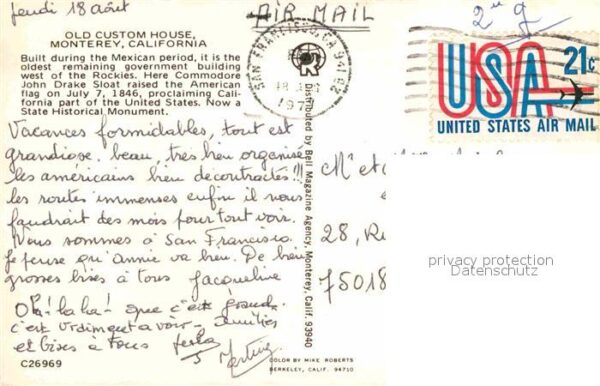 Jeudi 18 août
AIR MAIL
2 u g
OLD CUSTOM HOUSE,
MONTEREY, CALIFORNIA
Built during the Mexican period, it is the
oldest remaining government building
west of the Rockies. Here Commodore
John Drake Sloat raised the American
flag on July 7, 1846, proclaiming Cali-
fornia part of the United States. Now a
State Historical Monument.
Vacances formidables, tout est
grandiose, beau, très bien organisé
les américains bien décontractés!!!
les routes immenses enfin il nous
faudrait des mois pour tout voir.
Nous sommes à San Francisco.
Je pense qu'annie va bien. De bien
grosses bises à tous Jacqueline
Oh! la la! que c'est grand
c'est vraiment a voir - amitiés
et bises à tous
Martine
C26969
Distributed by Bell Magazine Agency, Monterey, Calif. 93940
COLOR BY MIKE ROBERTS
BERKELEY, CALIF. 94710
SAN FRANCISCO, CA
18
USA 21c
UNITED STATES AIR MAIL
Mr et
28, R
75018
privacy protection
Datenschutz